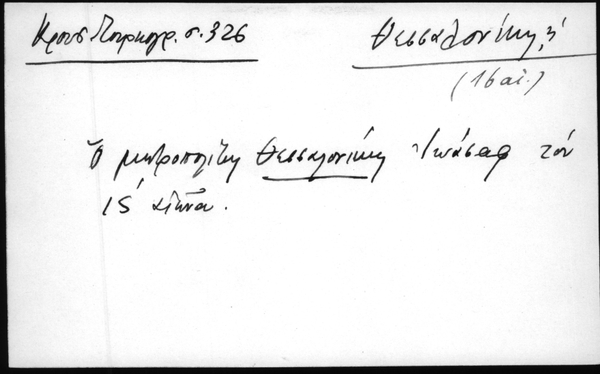 Κρουσ. Τουρκογρ. σ. 326
Θεσσαλονίκη, ἡ
(16 αἰ.)
Ὁ μητροπολίτης Θεσσαλονίκης Ἰωάσαφ τὸν
ΙϚ´ αἰῶνα.